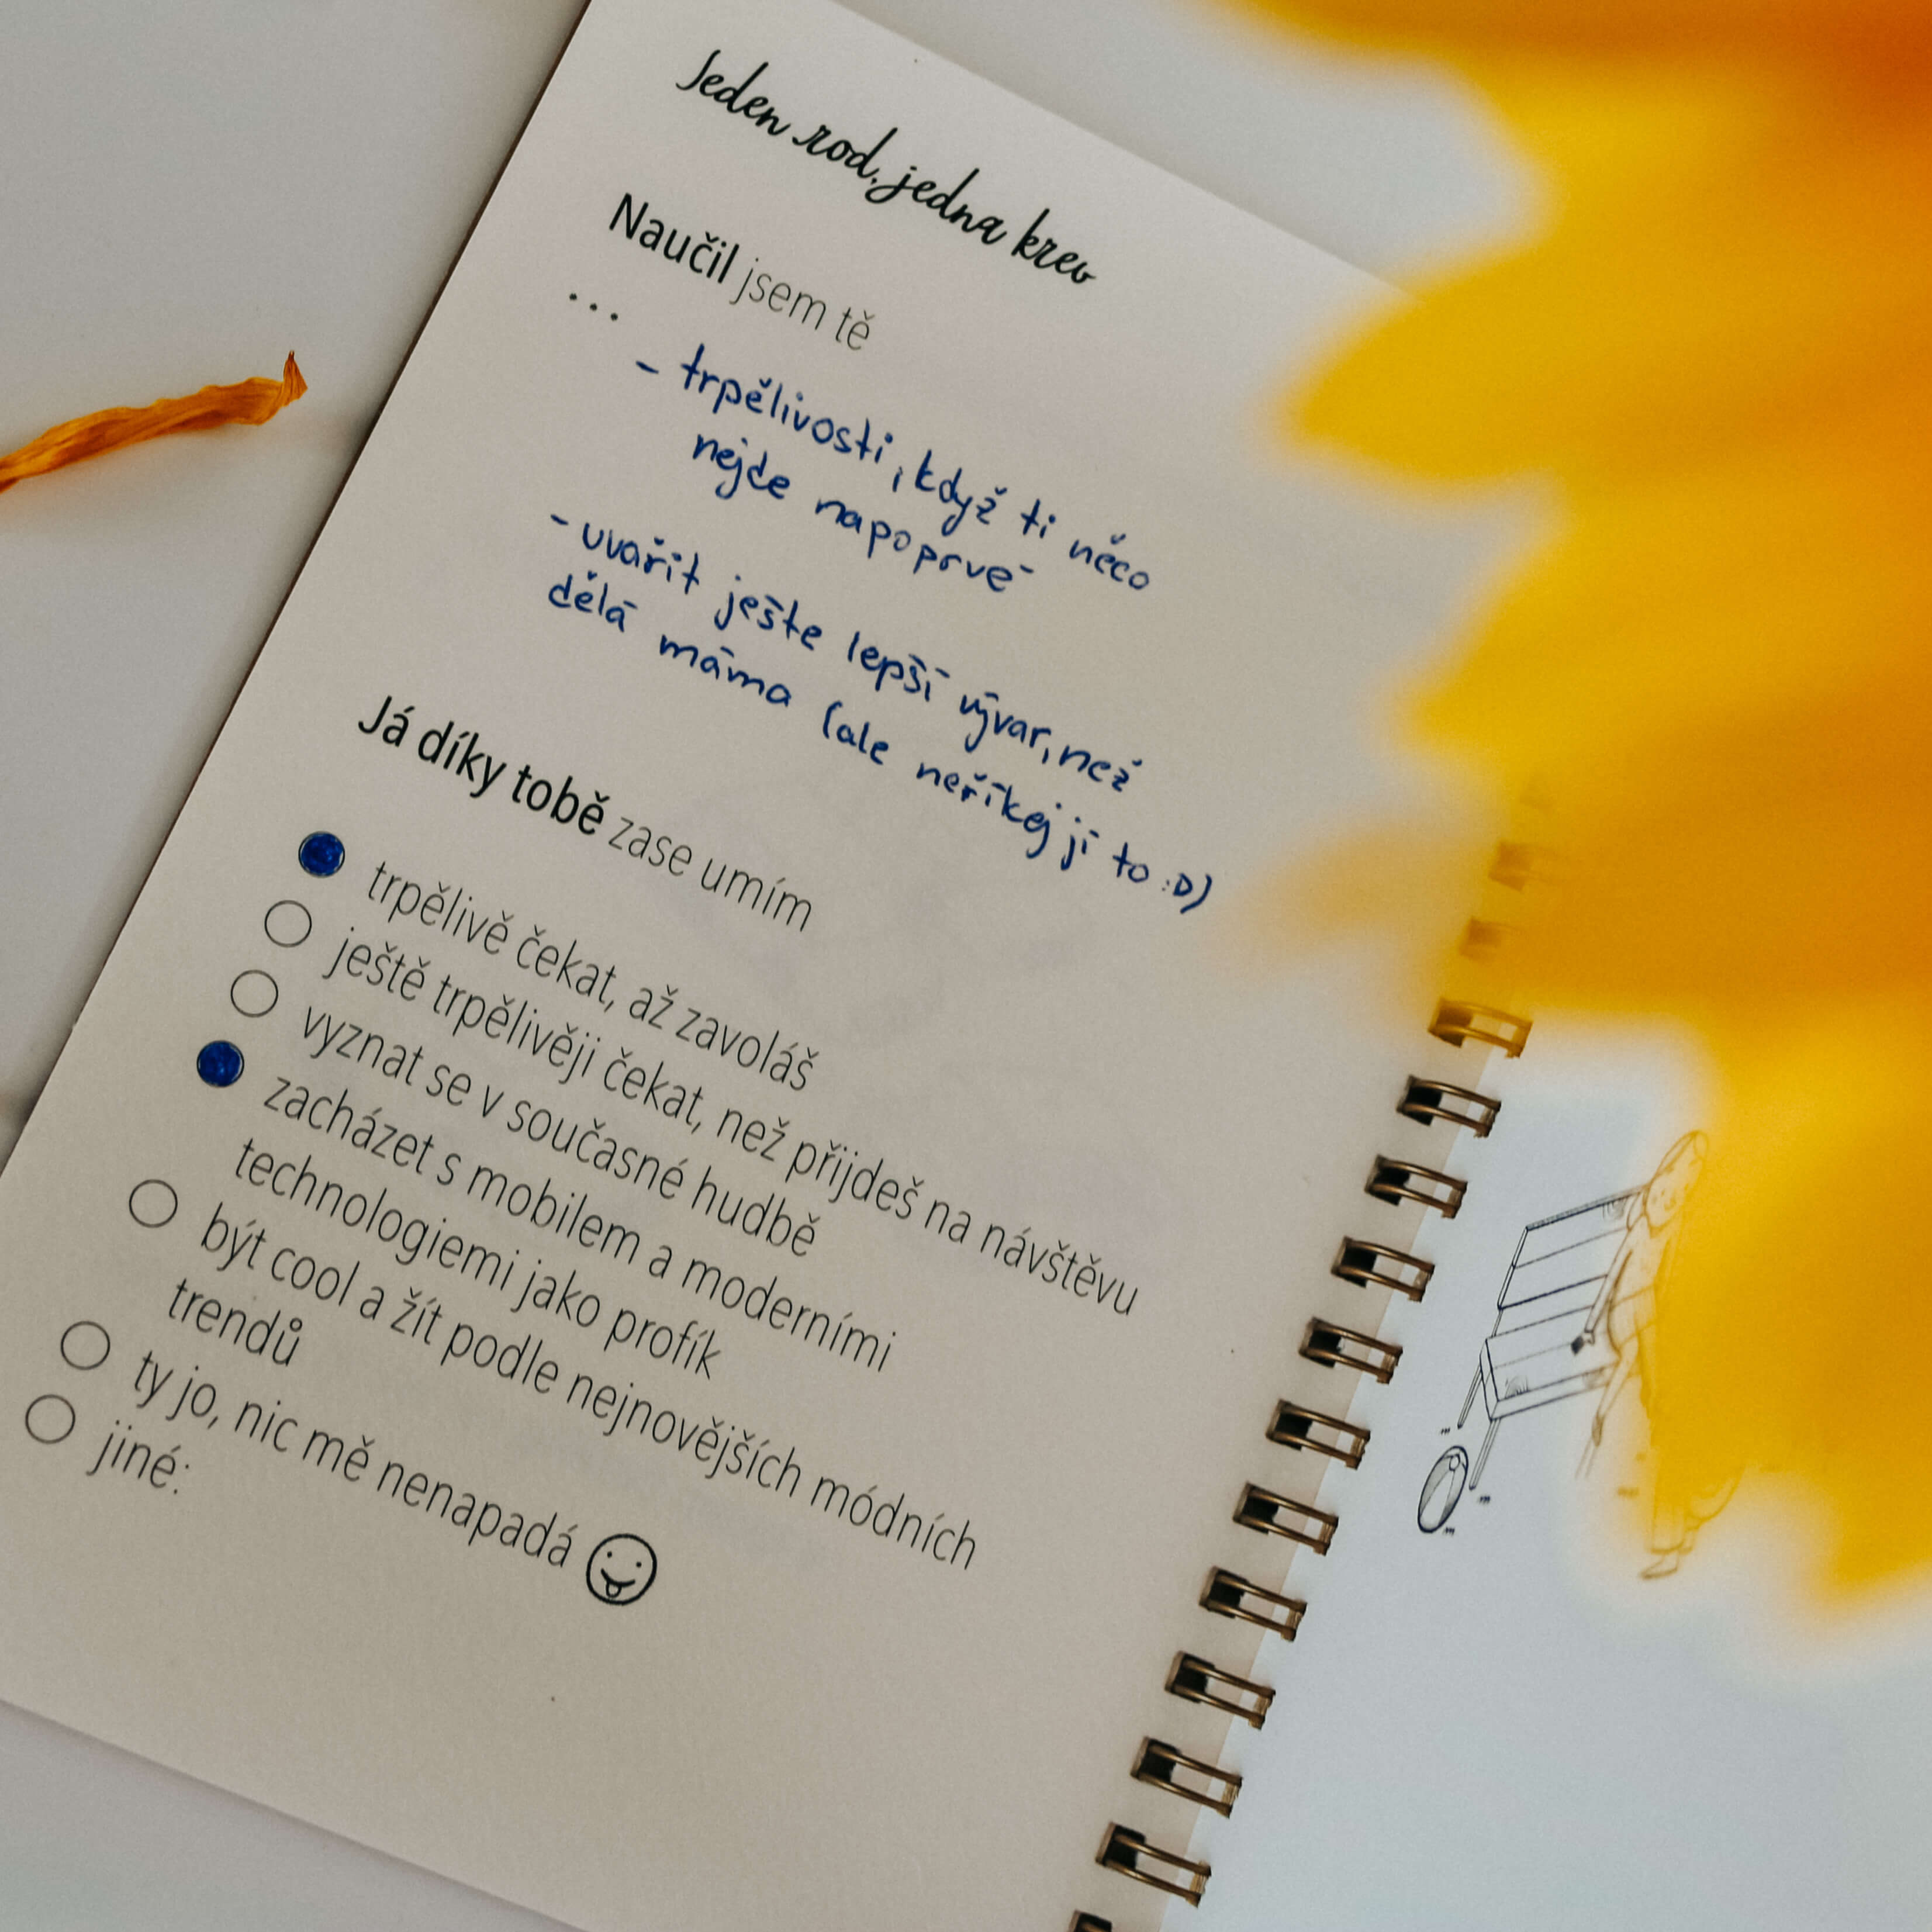 Jeden rod, jedna krev
Naučil jsem tě
...
- trpělivosti, když ti něco
nejde napoprvé
- uvařit ještě lepší vývar, než
dělá máma (ale neříkej jí to :D)
Já díky tobě zase umím
trpělivě čekat, až zavoláš
ještě trpělivěji čekat, než přijdeš na návštěvu
vyznat se v současné hudbě
zacházet s mobilem a moderními
technologiemi jako profík
být cool a žít podle nejnovějších módních
trendů
ty jo, nic mě nenapadá
jiné: